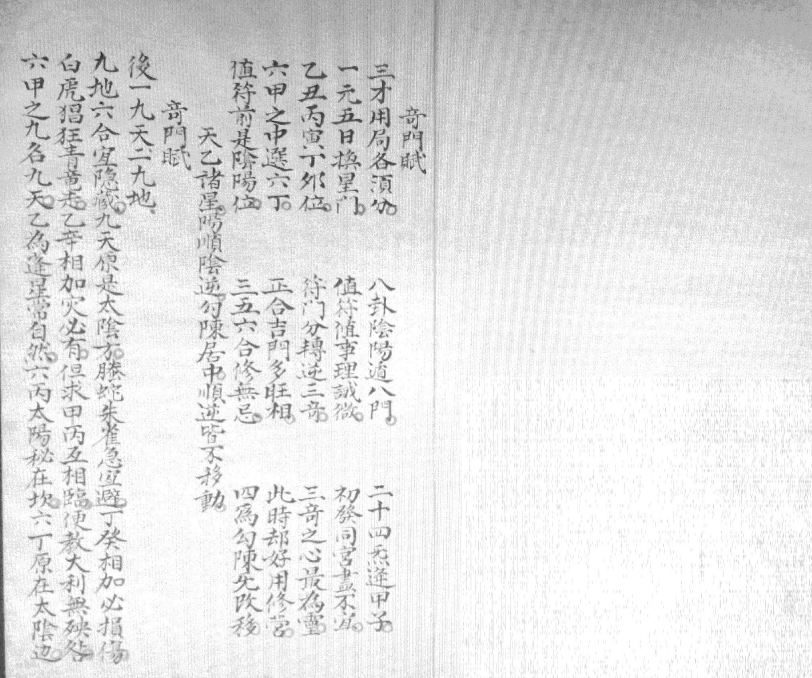 奇門賦
三才用局各須分 八卦陰陽遁八門 二十四炁逢甲子
一元五日換星門 值符值事理誠微 初發同宮盡不宜
乙丑丙寅丁卯位 符門分轉逆三奇 三奇之心最為靈
六甲之中選六丁 正合吉門多旺相 此時却好用修營
值符前是陰陽位 三五六合修無忌 四為勾陳先改移
天乙諸星陽順陰逆勾陳居中順逆皆不移動
奇門賦
後一九天二九地
九地六合宜隐藏九天原是太陰方螣蛇朱雀急宜避丁癸相加必損傷
白虎猖狂青竜走乙辛相加灾必有但求甲丙互相臨便教大利無殃咎
六甲之九名九天乙為逢星常自然六丙太陽秘在坎六丁原在太陰边